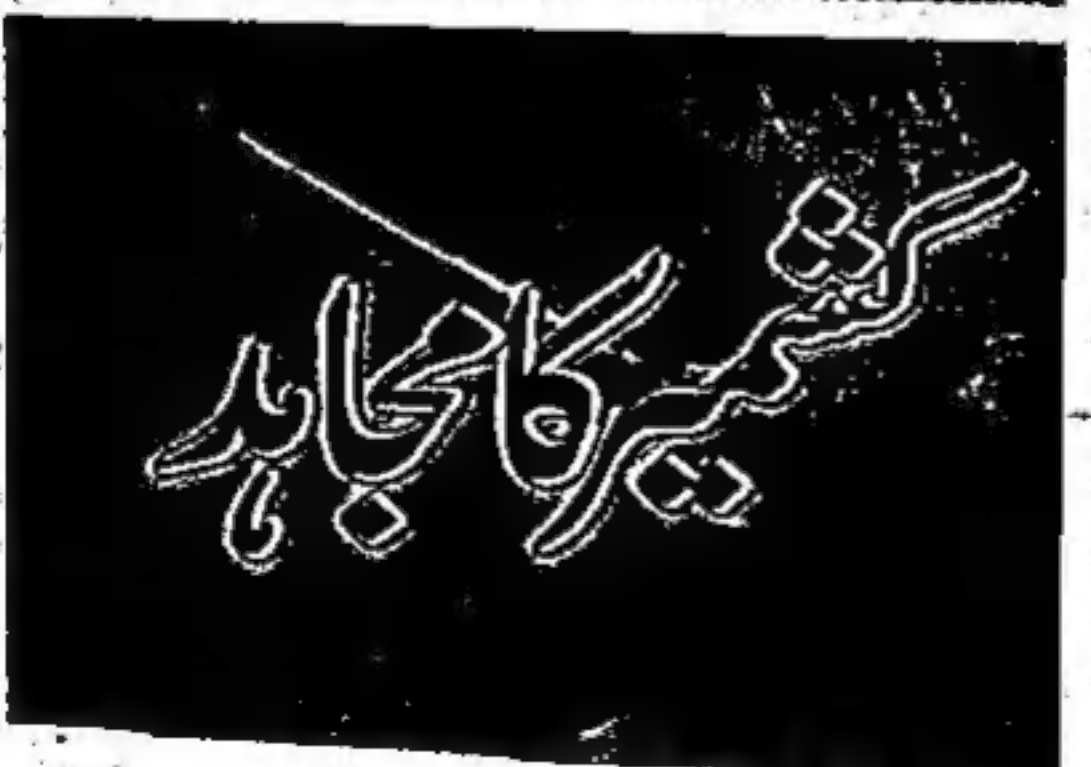 کشمیر کا مجاہد